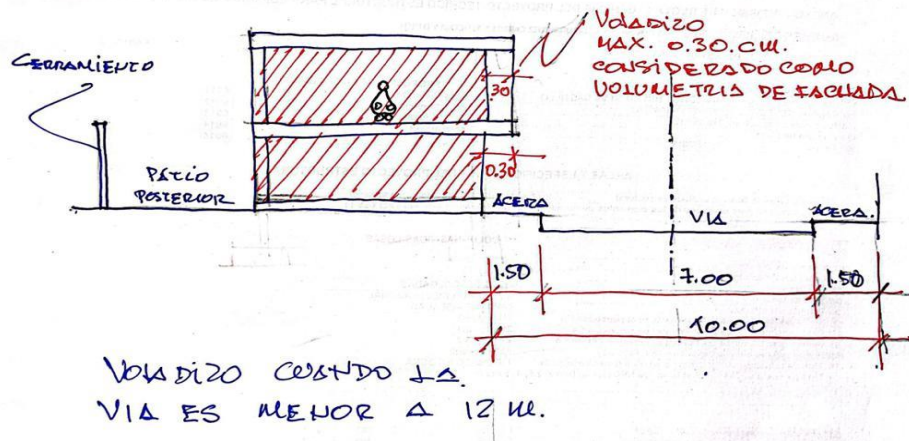 VOLADIZO
MAX. 0.30.CM.
CONSIDERADO COMO
VOLUMETRIA DE FACHADA
CERRAMIENTO
.30
0.30
PATIO
POSTERIOR
ACERA
VIA
ACERA.
1.50
7.00
1.50
10.00
VOLADIZO CUANDO LA.
VIA ES MENOR A 12 M.